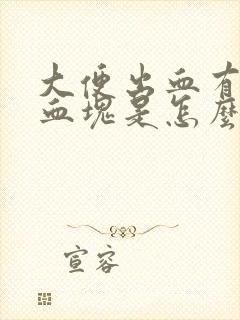 大便出血有
血塊是怎麼
宣容